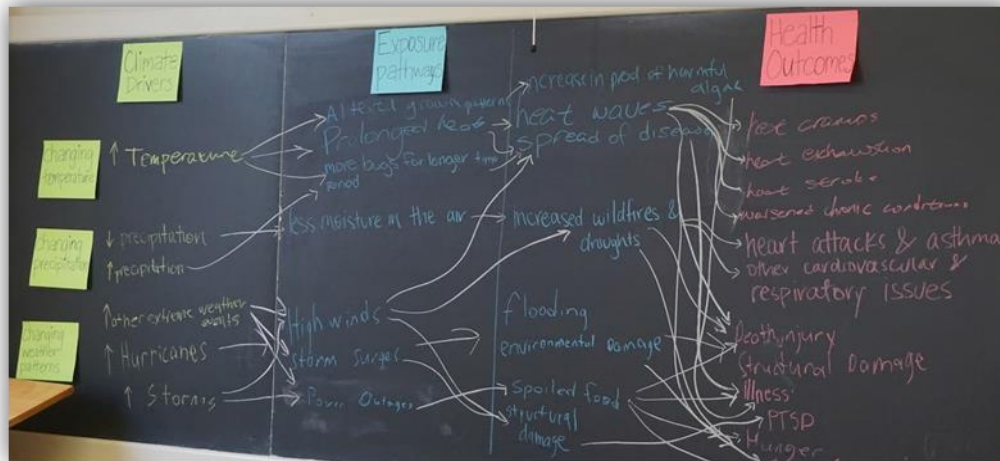 Climate
Drivers
changing
temperature
↑ Temperature
changing
precipitation
↓ precipitation
↑ precipitation
changing
weather
patterns
↑ other extreme weather
events
↑ Hurricanes
↑ Storms
Exposure
pathways
Altered growth
Prolonged heat
more bugs for longer time
period
less moisture in the air
High winds
storm surges
Power Outages
increase in prod of harmful
algae
heat waves
spread of disease
increased wildfires &
droughts
flooding
environmental Damage
Spoiled food
structural
damage
Health
Outcomes
heat cramps
heat exhaustion
heat stroke
worsened chronic conditions
heart attacks & asthma
other cardiovascular &
respiratory issues
Death, injury
Structural Damage
illness
PTSD
Hunger